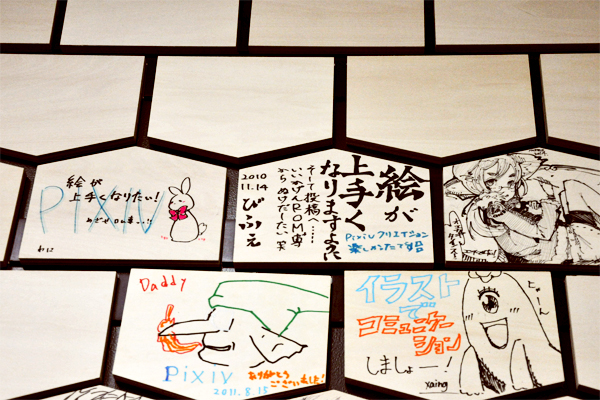 絵が
上手くなりたい！
PIXIV
絵が
上手く
なりますように
そして投稿……
いいかげんROM専
から ぬけだしたい 笑
2010
11.14
びふぇ
Pixiv クリエイション
Daddy
PiXiV
ありがとう
ございました！
2011.8.15
イラスト
で
コミュニケー
ション
しましょー！
にゃーん
xaing